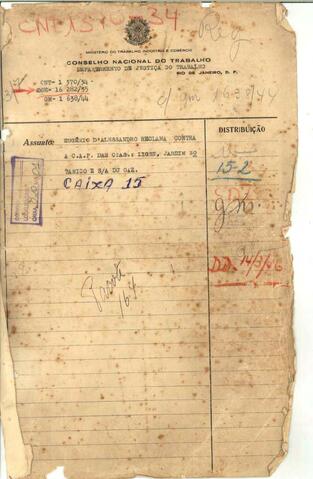 CNT 1570-34
MINISTERIO DO TRABALHO INDUSTRIA E COMERCIO
CONSELHO NACIONAL DO TRABALHO
DEPARTAMENTO DE JUSTIÇA DO TRABALHO
RIO DE JANEIRO, D. F.
CNT- 1 570/34
16 282/35
1 630/44
DISTRIBUIÇÃO
Assunto:
EUGÊNIO D'ALESSANDRO RECLAMA CONTRA
A C.A.P. DAS CIAS.: LIGHT, JARDIM BO
TANICO E S/A DO GAZ.
CAIXA 15
15-2
14/3/46
164